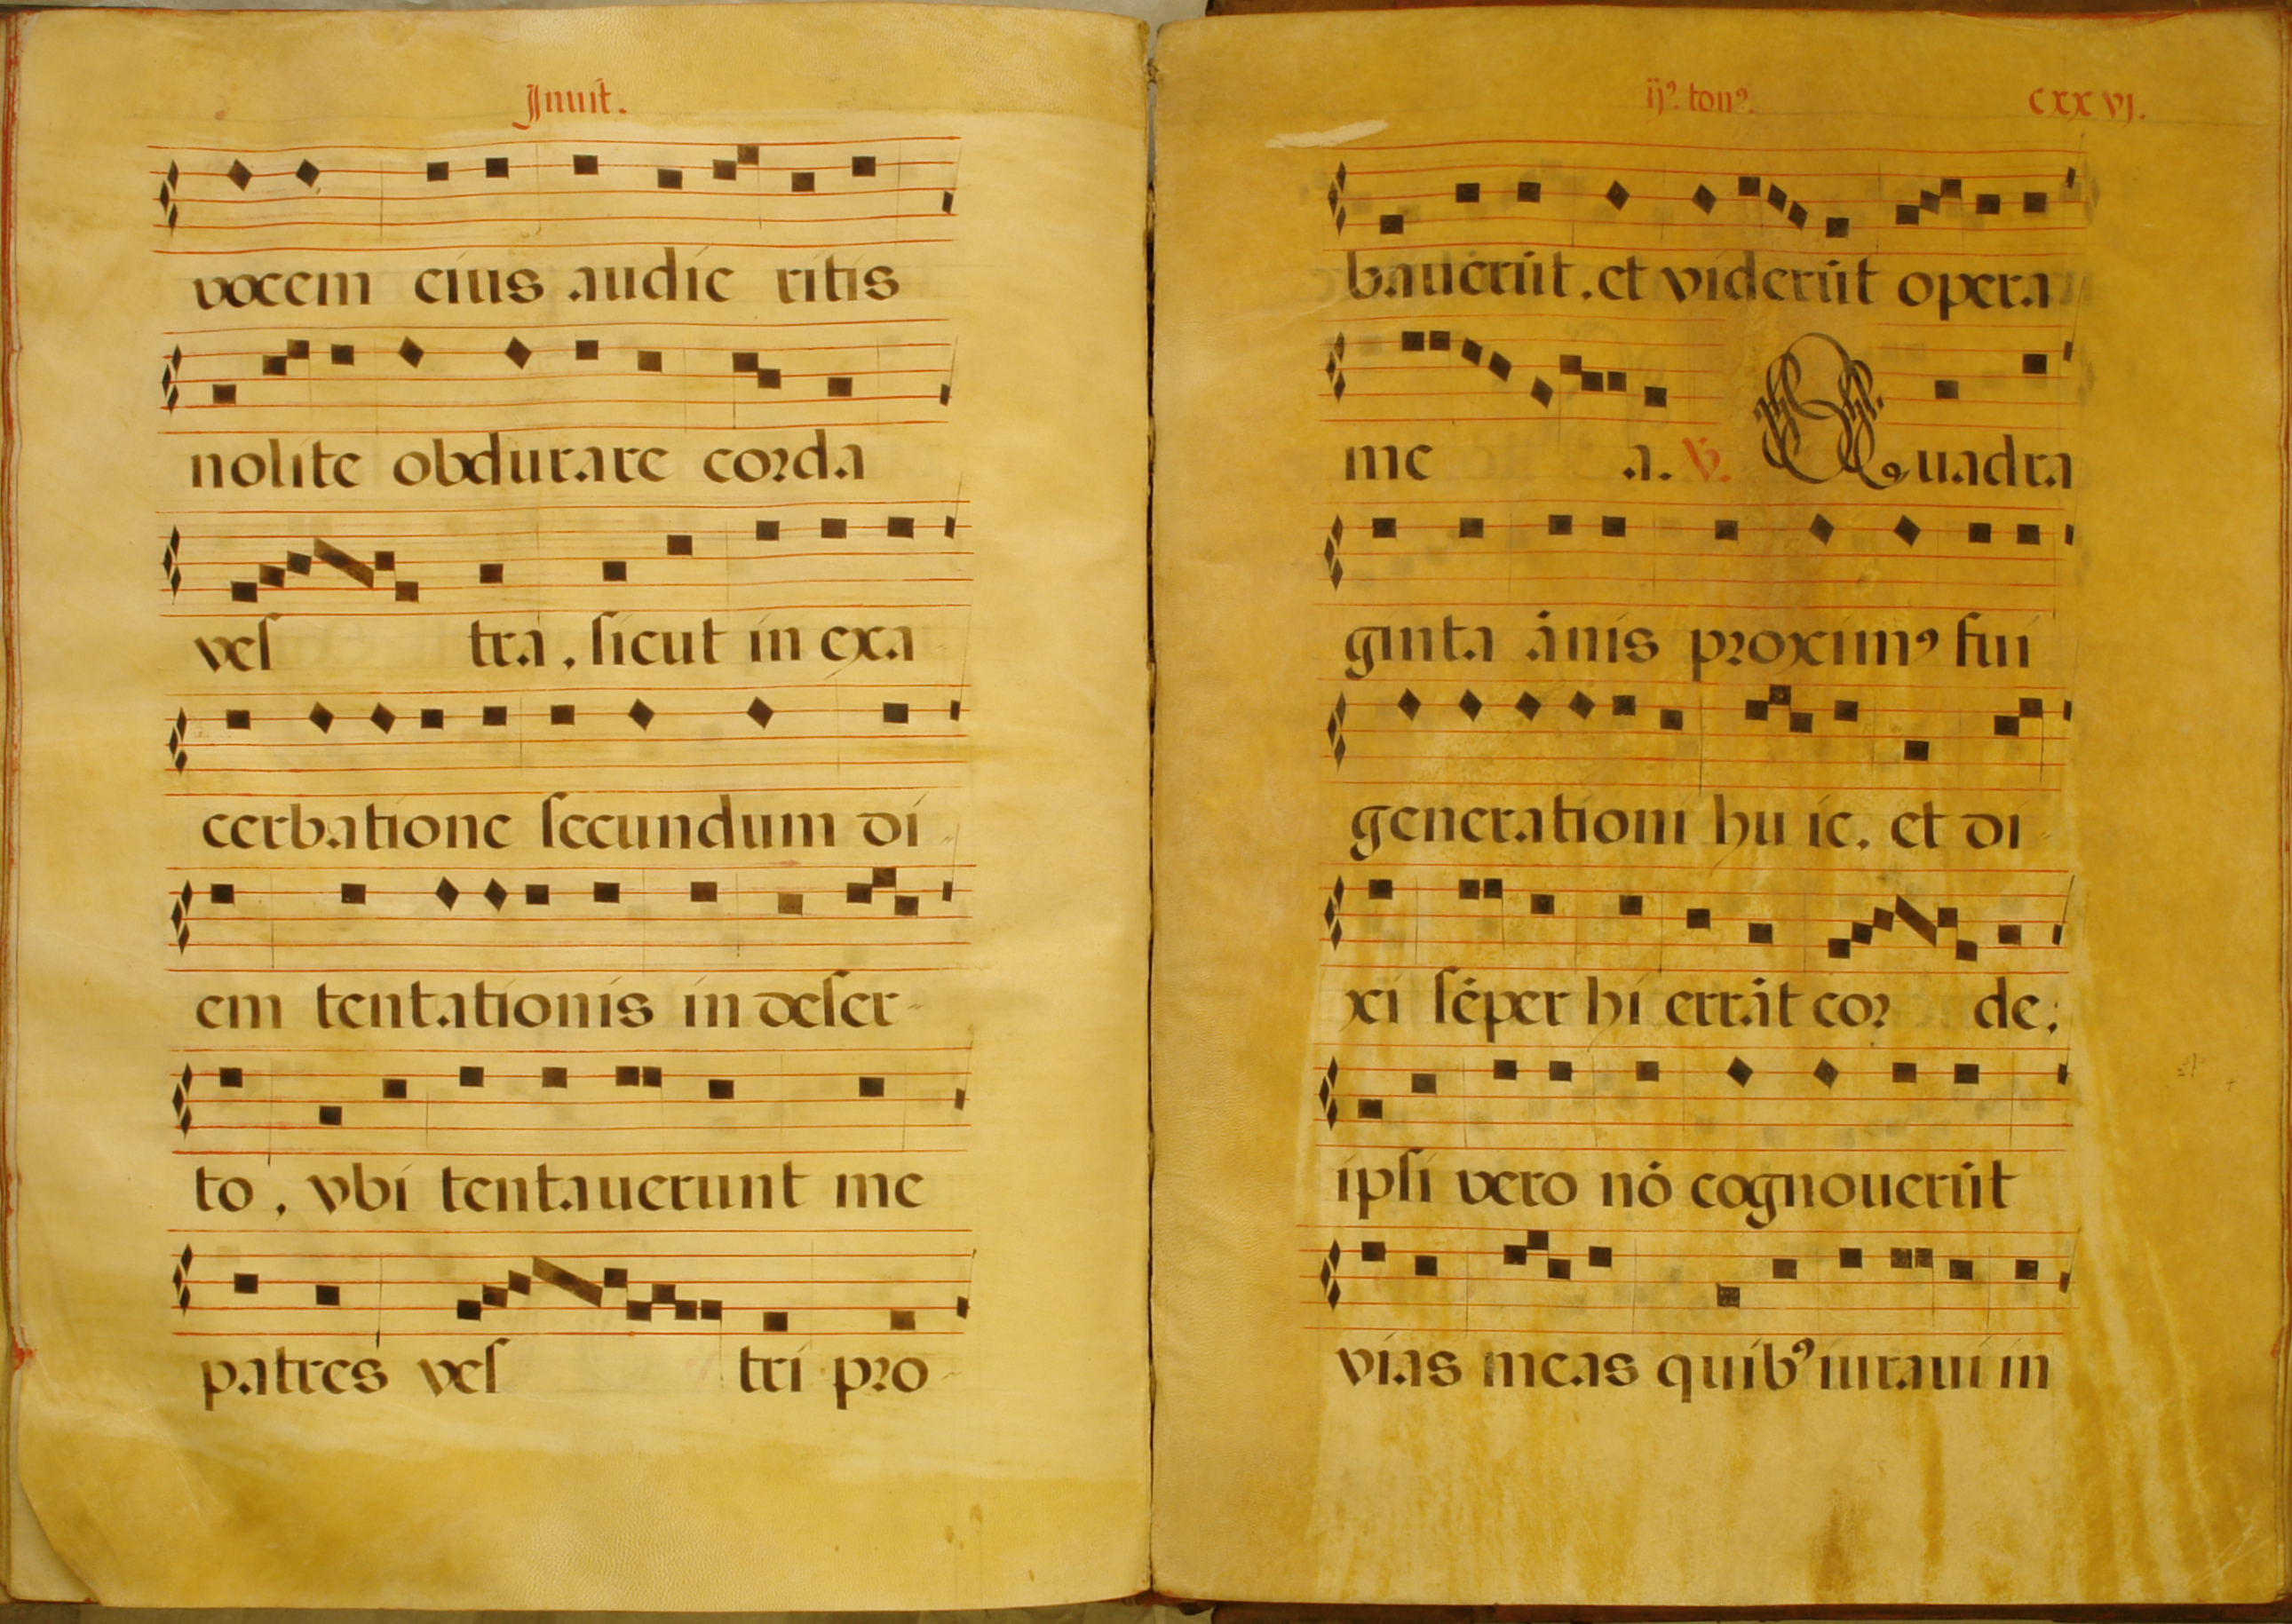 Inuit.
vocem eius audie ritis
nolite obdurare corda
vesſ tra, ſicut in exa
cerbatione ſecundum di
em tentationis in deſer-
to, vbi tentauerunt me
patres veſ tri pro-
ijꝰ. tonꝰ. cxxvj.
bauerūt. et viderūt opera
me a. ℣. Quadra
ginta ānis proximꝰ fui
generationi hu ic. et di-
xi ſēper hi errāt cor de:
ipſi vero nō cognouerūt
vias meas quibꝰ iuraui in